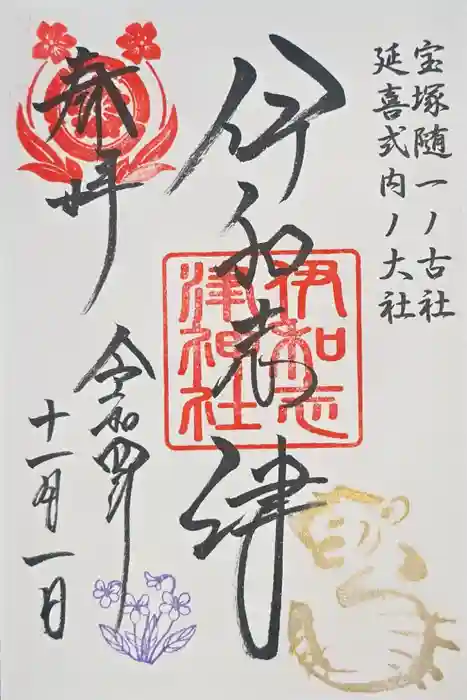 宝塚随一ノ古社
延喜式内ノ大社
伊和志津
伊和志
津神社
奉拝
令和四年
十一月一日